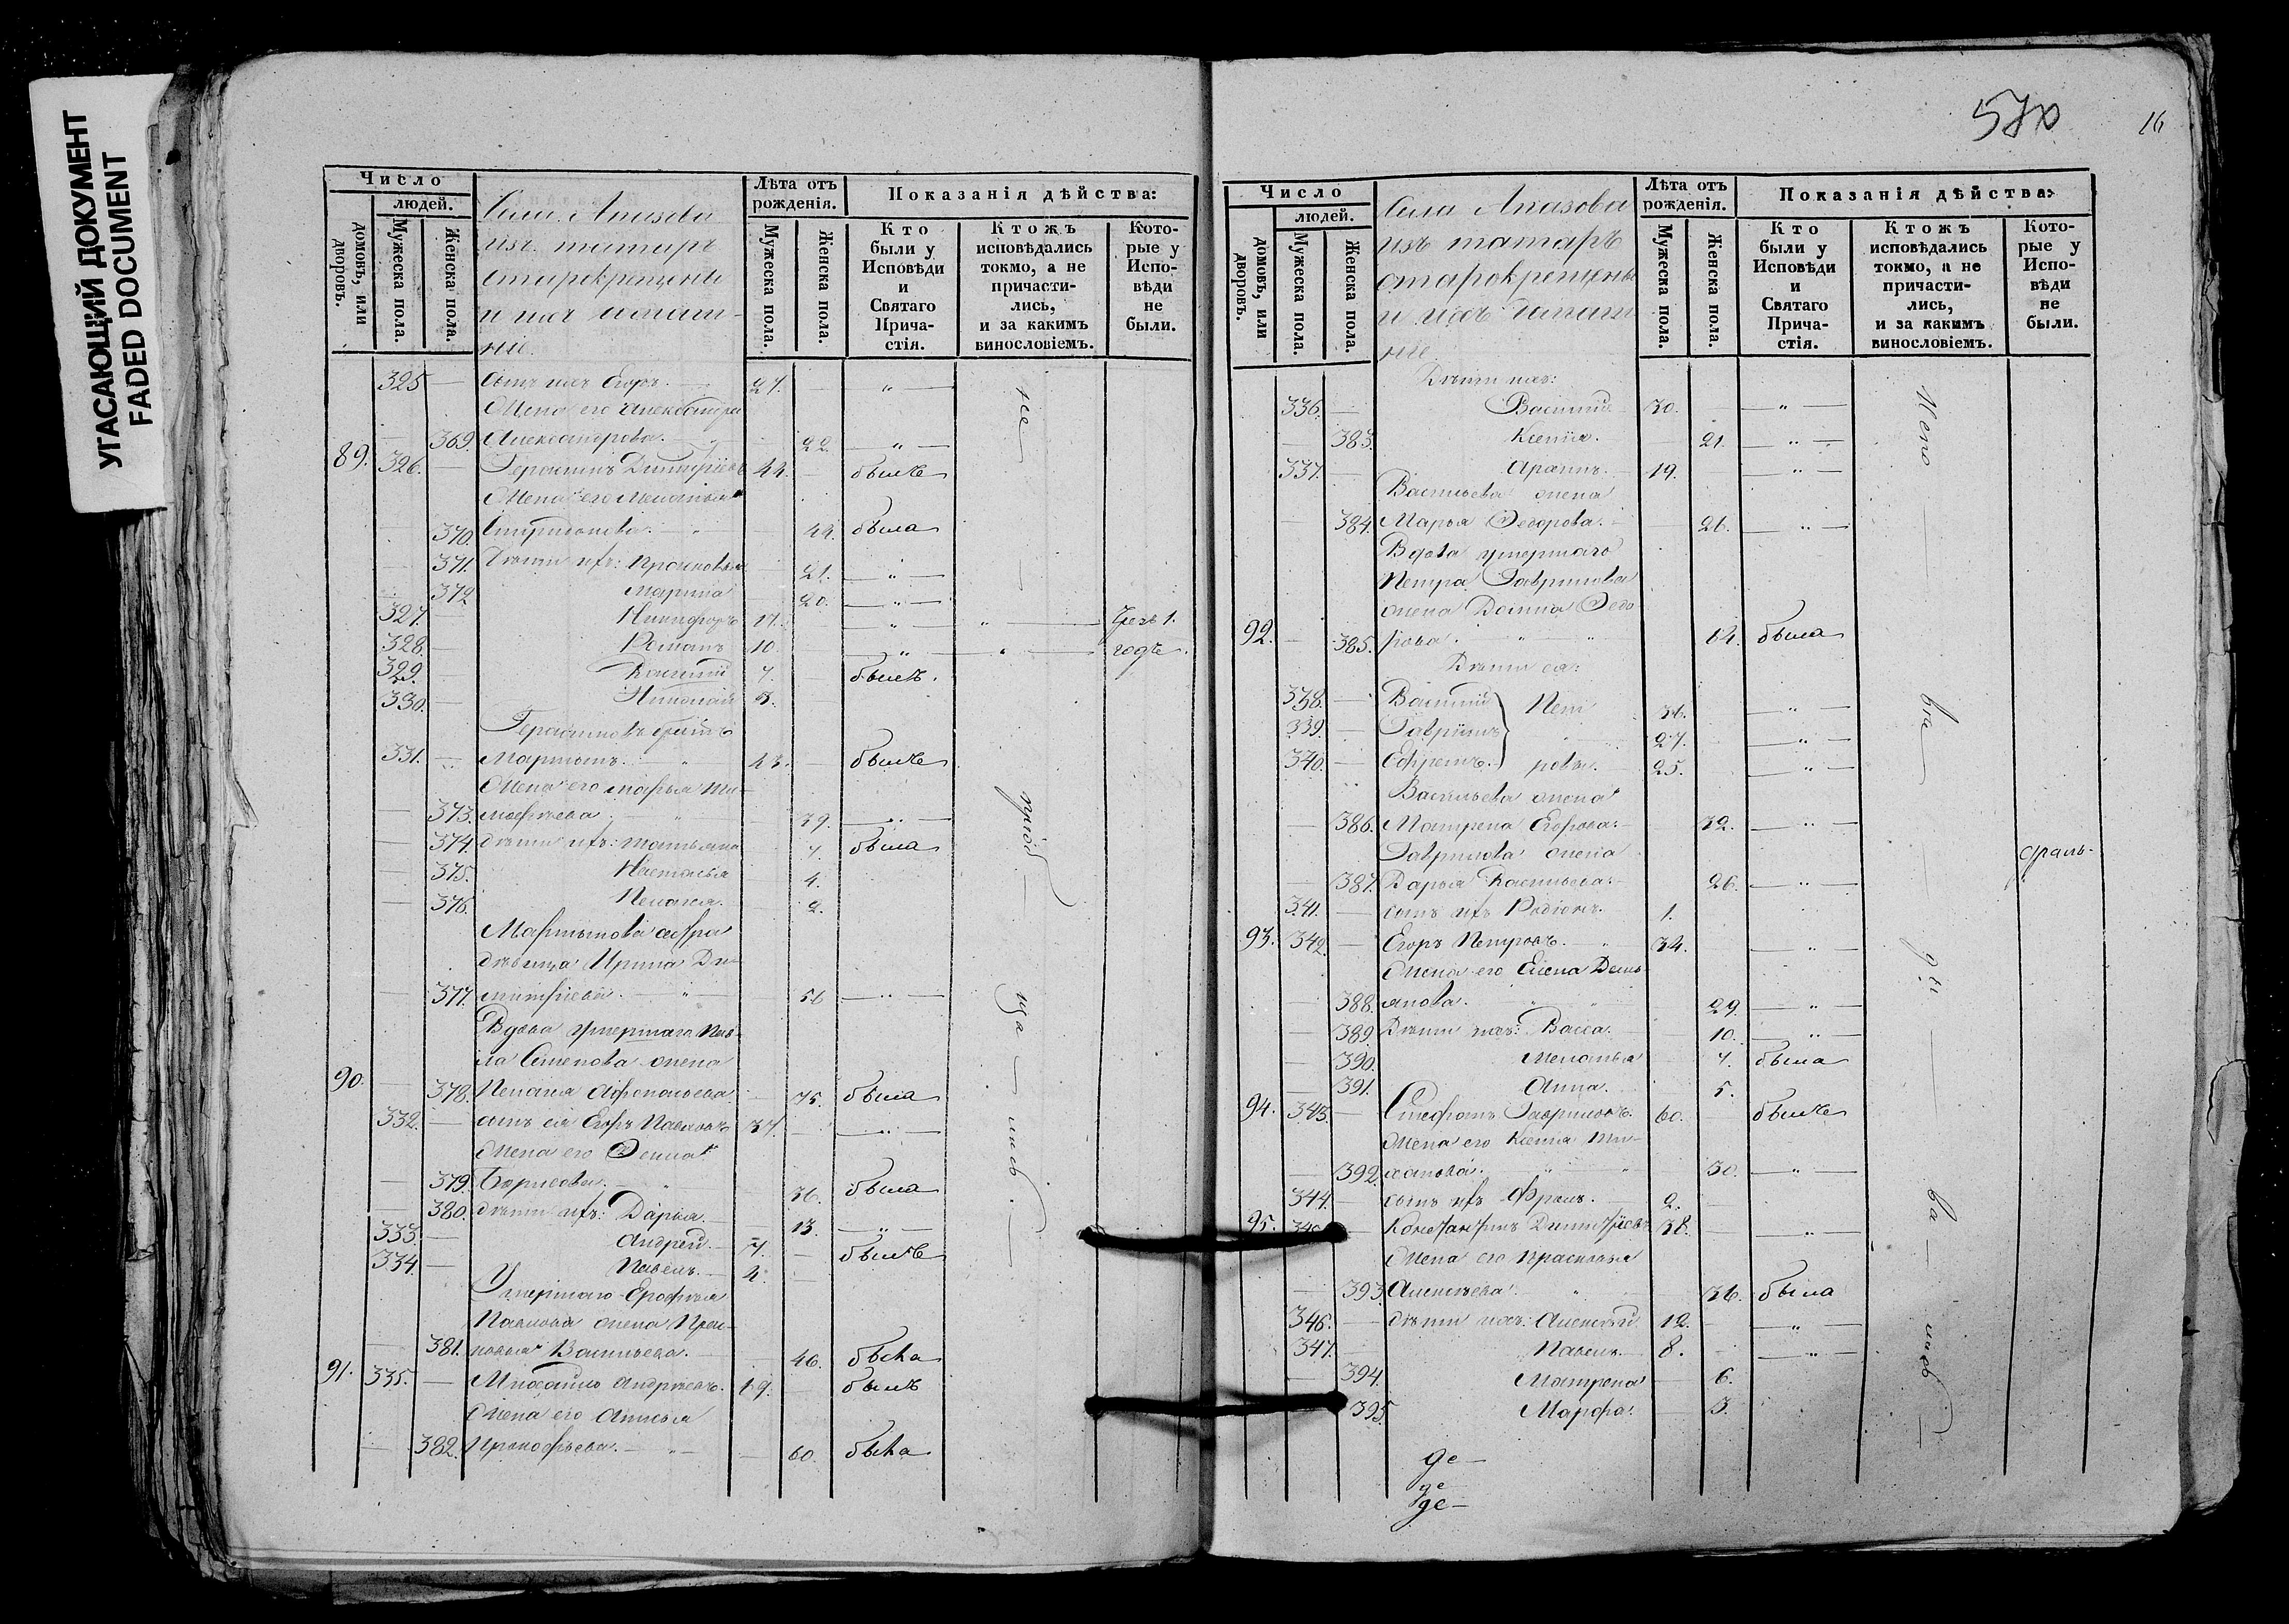 УГАСАЮЩИЙ ДОКУМЕНТ
FADED DOCUMENT
Число
людей.
домовъ, или дворовъ.
Мужеска пола.
Женска пола.
Села Апазова
изъ татаръ
старокрещены
и ихъ домаш-
ніе.
Лѣта отъ рожденія.
Мужеска пола.
Женска пола.
Показанія дѣйства:
Кто были у Исповѣди и Святаго Причастія.
Ктожъ исповѣдались токмо, а не причастились, и за какимъ винословіемъ.
Которые у Исповѣди не были.
325 — Сынъ ихъ Егоръ. 27. — „ —
Жена его Александра
369. Александрова. 22. — „ —
89. 326. — Герасимъ Димитріевъ 44. — былъ
Жена его Меланья
370. 44. была
371. Дѣти ихъ: Прасковья 21. — „ —
372 Марина 20. — „ —
327. Никифоръ 17. — „ — „ — чрезъ 1.
328. Романъ 10. — „ — „ — годъ.
329. Василій 7. былъ.
330. Николай 3.
Герасимовъ братъ
331. — Мартынъ. 43. — былъ
Жена его Марья Ти-
373. мофѣева. 39. — „ —
374. дѣти ихъ: Татьяна 7. была
375. Настасья 4.
376. Пелагея. 2.
Мартынова сестра
дѣвица Ирина Ди-
377. митріева. 56 — „ —
Вдова умершаго Пав-
ла Степова жена
90. 378. Пелагея Афонасьева 75. была
332. — сынъ ея Егоръ Павловъ 37. — „ —
Жена его Ѳекла
379. Борисова. 36. была
380. дѣти ихъ: Дарья. 13. — „ —
333. Андрей. 7. — былъ
334. Павелъ. 4.
Умершаго Ерофѣя
Павлова жена Прас-
381. ковья Васильева. 46. была
91. 335. — Михайло Андрѣевъ. 19. былъ
Жена его Анисья
382. Прокофьева. 60. была
не — прiоб — ща — лись. —
570
16
Число
людей.
домовъ, или дворовъ.
Мужеска пола.
Женска пола.
Села Апазова
изъ татаръ
старокрещены
и ихъ домаш
ніе.
Лѣта отъ рожденія.
Мужеска пола.
Женска пола.
Показанія дѣйства:
Кто были у Исповѣди и Святаго Причастія.
Ктожъ исповѣдались токмо, а не причастились, и за какимъ винословіемъ.
Которые у Исповѣди не были.
Дѣти ихъ:
336. — Василій 30. — „ —
383. Ксенія. 21. — „ —
337. — 19. — „ —
Васильева жена
384. Марья Ѳедорова. 26. — „ —
Вдова умершаго
Петра Гаврилова
жена Домна Ѳедо
92. — 385. рова. 64. была
Дѣти ея:
338. — Василій Пет 36. — „ —
339. — Гавріилъ 27. — „ —
340. — Ефремъ. ровы. 25. — „ —
Васильева жена
386. Матрена Егорова. 32. — „ —
Гаврилова жена
387. Дарья Васильева. 26. — „ —
341. — сынъ ихъ Родіонъ. 1.
93. 342. — Егоръ Петровъ. 34. — „ —
Жена его Елена Демь
388. янова. 29. — „ —
389. Дѣти ихъ: Васса. 10. — „ —
390. Меланья 7. была
391. Анна. 5.
94. 343. — Стефанъ Гавриловъ. 60. — былъ
Жена его Ксенія
392. 30. — „ —
344. — сынъ ихъ Фролъ. 2.
95. 345 — Константинъ Димитріевъ 38. — „ —
Жена его Прасковья
393. Алексѣева. 36. была
346. — дѣти ихъ: Алексѣй 12. — „ —
347. Павелъ. 8. — „ —
394. Матрена 6.
395 Марфа. 3.
Испо — вѣ — до — ва — лись —
де —
де
де —